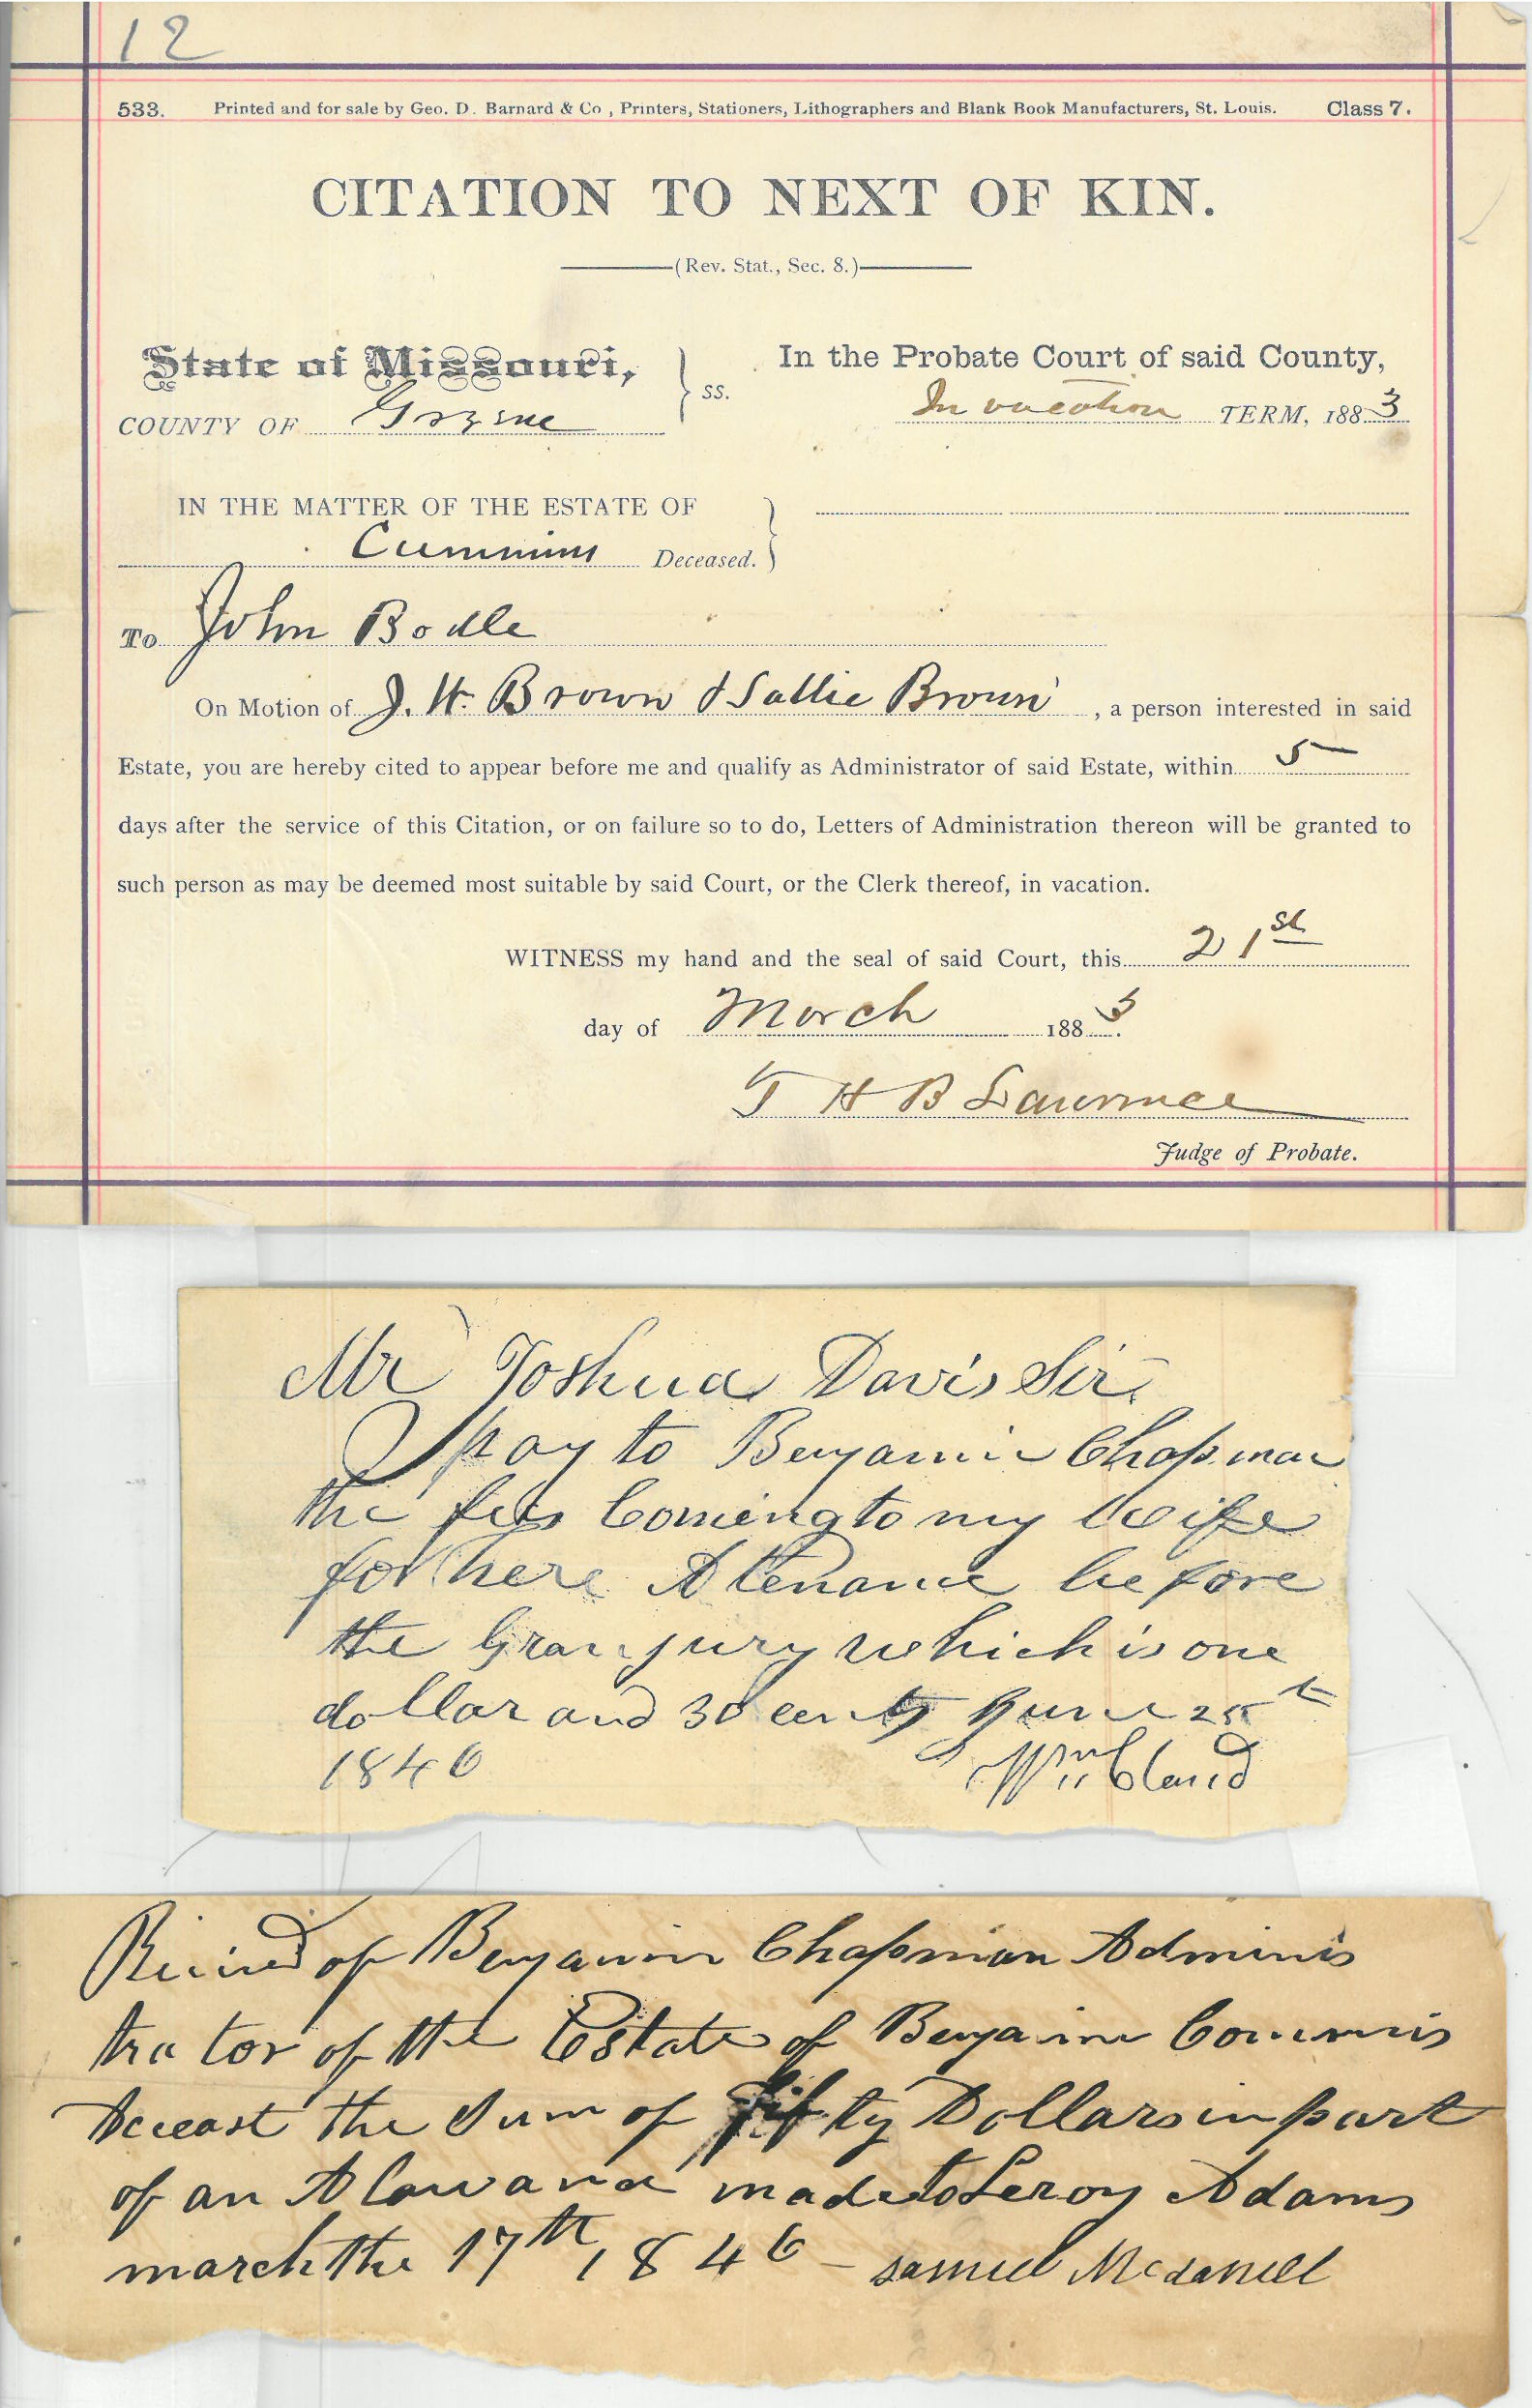 12
533. Printed and for sale by Geo. D. Barnard & Co , Printers, Stationers, Lithographers and Blank Book Manufacturers, St. Louis. Class 7.
CITATION TO NEXT OF KIN.
(Rev. Stat., Sec. 8.)
State of Missouri, } ss. In the Probate Court of said County,
COUNTY OF Greene In vacation TERM, 1883
IN THE MATTER OF THE ESTATE OF }
Cummins Deceased.
To John Bodle
On Motion of J. W. Brown & Sallie Brown , a person interested in said
Estate, you are hereby cited to appear before me and qualify as Administrator of said Estate, within 5
days after the service of this Citation, or on failure so to do, Letters of Administration thereon will be granted to
such person as may be deemed most suitable by said Court, or the Clerk thereof, in vacation.
WITNESS my hand and the seal of said Court, this 21st
day of March 1883.
T H B Lawrence
Judge of Probate.
Mr Joshua Davis Sir
pay to Benjamin Chapman
the fees Coming to my Wife
for here Atenance before
the Gran jury which is one
dollar and 30 cents June 25t
1846 Wm Cland
Recined of Benjamin Chapman Adminis
trator of the Estate of Benjamin Commins
deceast the Sum of fifty Dollars in part
of an Alowance made to Leroy Adams
march the 17th 1846 - Samuel Mcdaniell